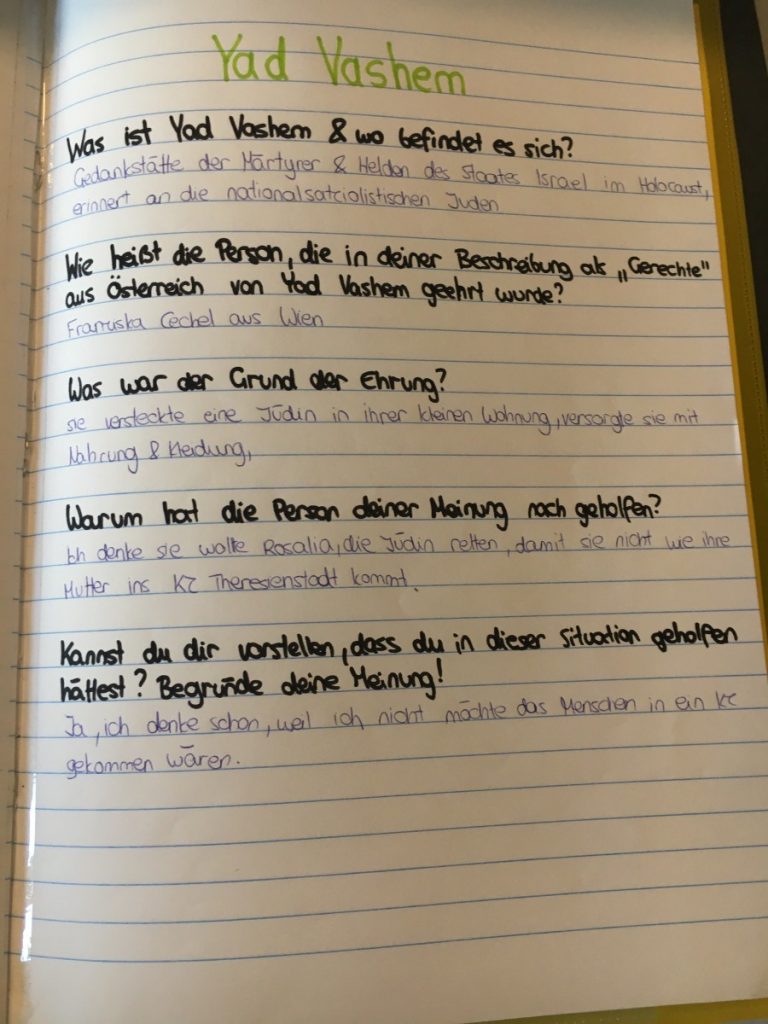 Yad Vashem
Was ist Yad Vashem & wo befindet es sich?
Gedankstätte der Märtyrer & Helden des Staates Israel im Holocaust,
erinnert an die nationalsatciolistischen Juden
Wie heißt die Person, die in deiner Beschreibung als „Gerechte"
aus Österreich von Yad Vashem geehrt wurde?
Franziska Cechel aus Wien
Was war der Grund der Ehrung?
sie versteckte eine Jüdin in ihrer kleinen Wohnung, versorgte sie mit
Nahrung & Kleidung,
Warum hat die Person deiner Meinung nach geholfen?
Ich denke sie wollte Rosalia, die Jüdin retten, damit sie nicht wie ihre
Mutter ins KZ Theresienstadt kommt.
Kannst du dir vorstellen, dass du in dieser Situation geholfen
hättest? Begründe deine Meinung!
Ja, ich denke schon, weil ich nicht möchte das Menschen in ein KZ
gekommen wären.